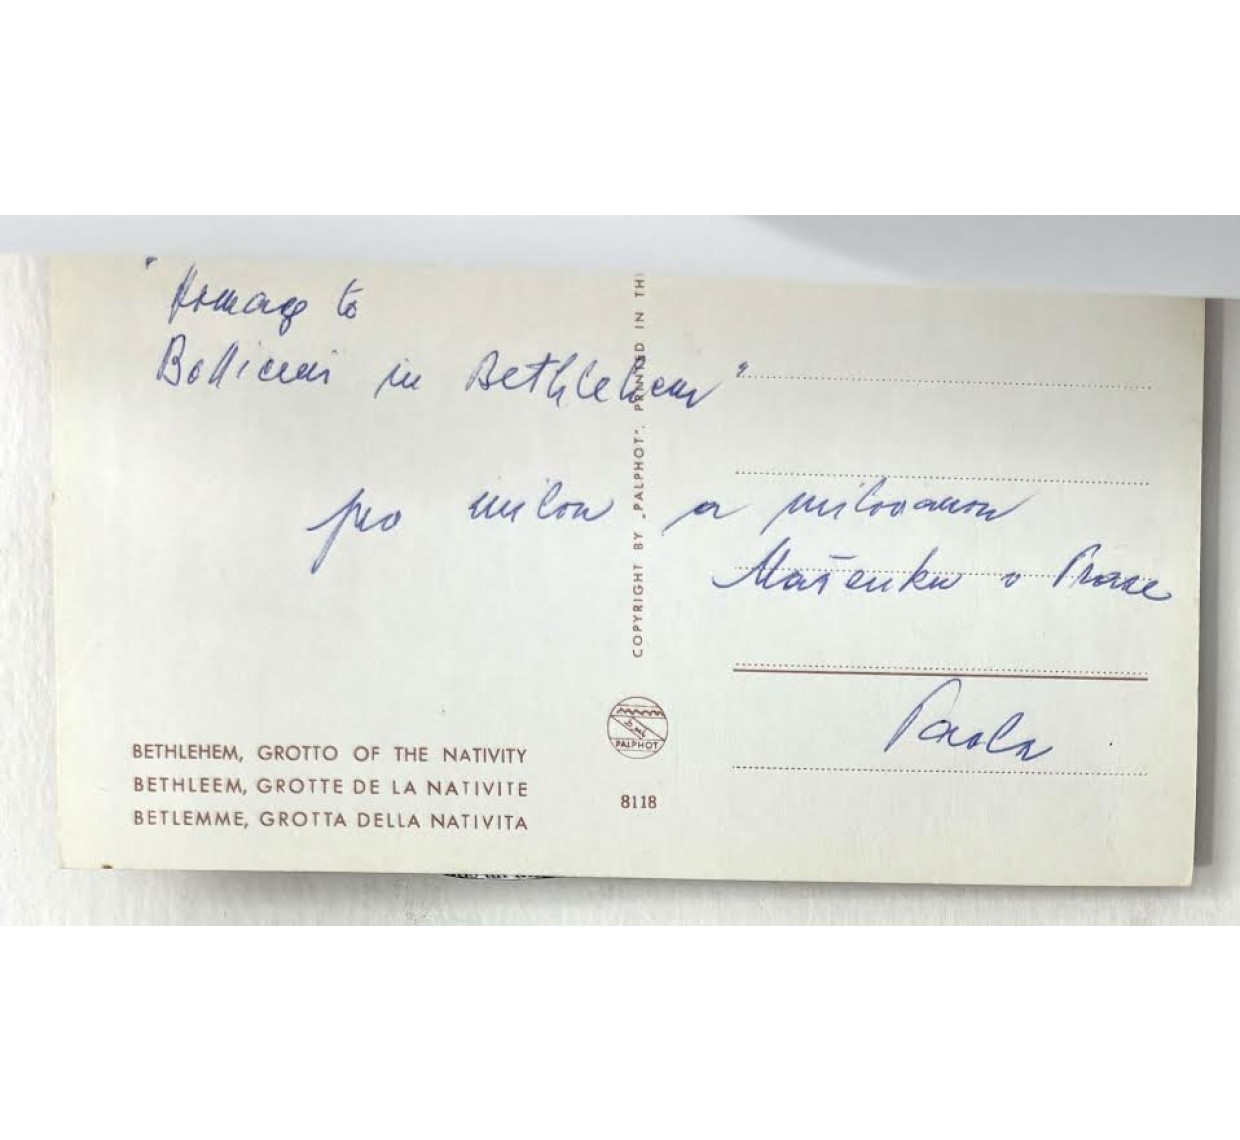 "Homage to
Botticelli in Bethlehem"
pro milou a milovanou
Mařenku v Praze
Paola
BETHLEHEM, GROTTO OF THE NATIVITY
BETHLEEM, GROTTE DE LA NATIVITE
BETLEMME, GROTTA DELLA NATIVITA
COPYRIGHT BY „PALPHOT". PRINTED IN TH
PALPHOT
8118